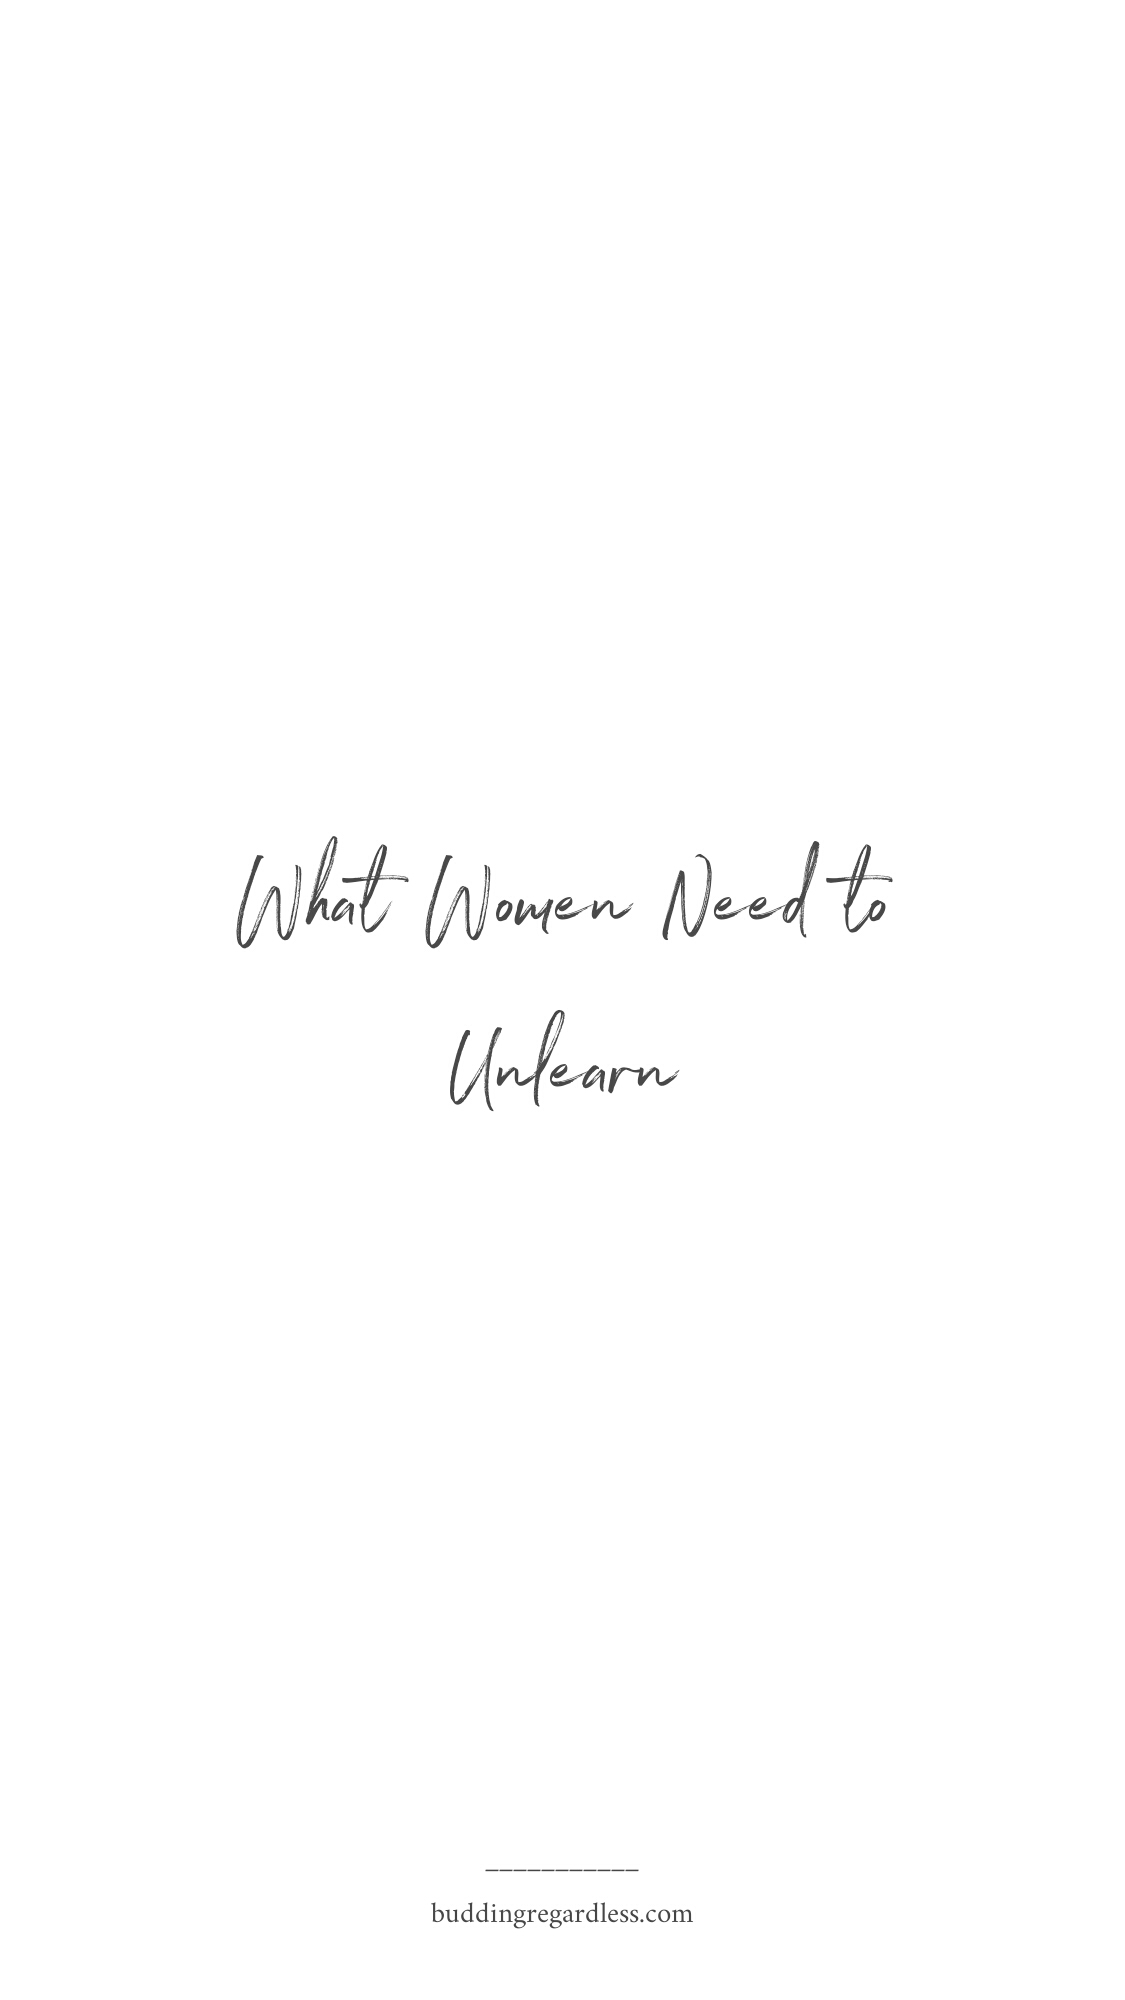 What Women Need to
Unlearn
___________
buddingregardless.com